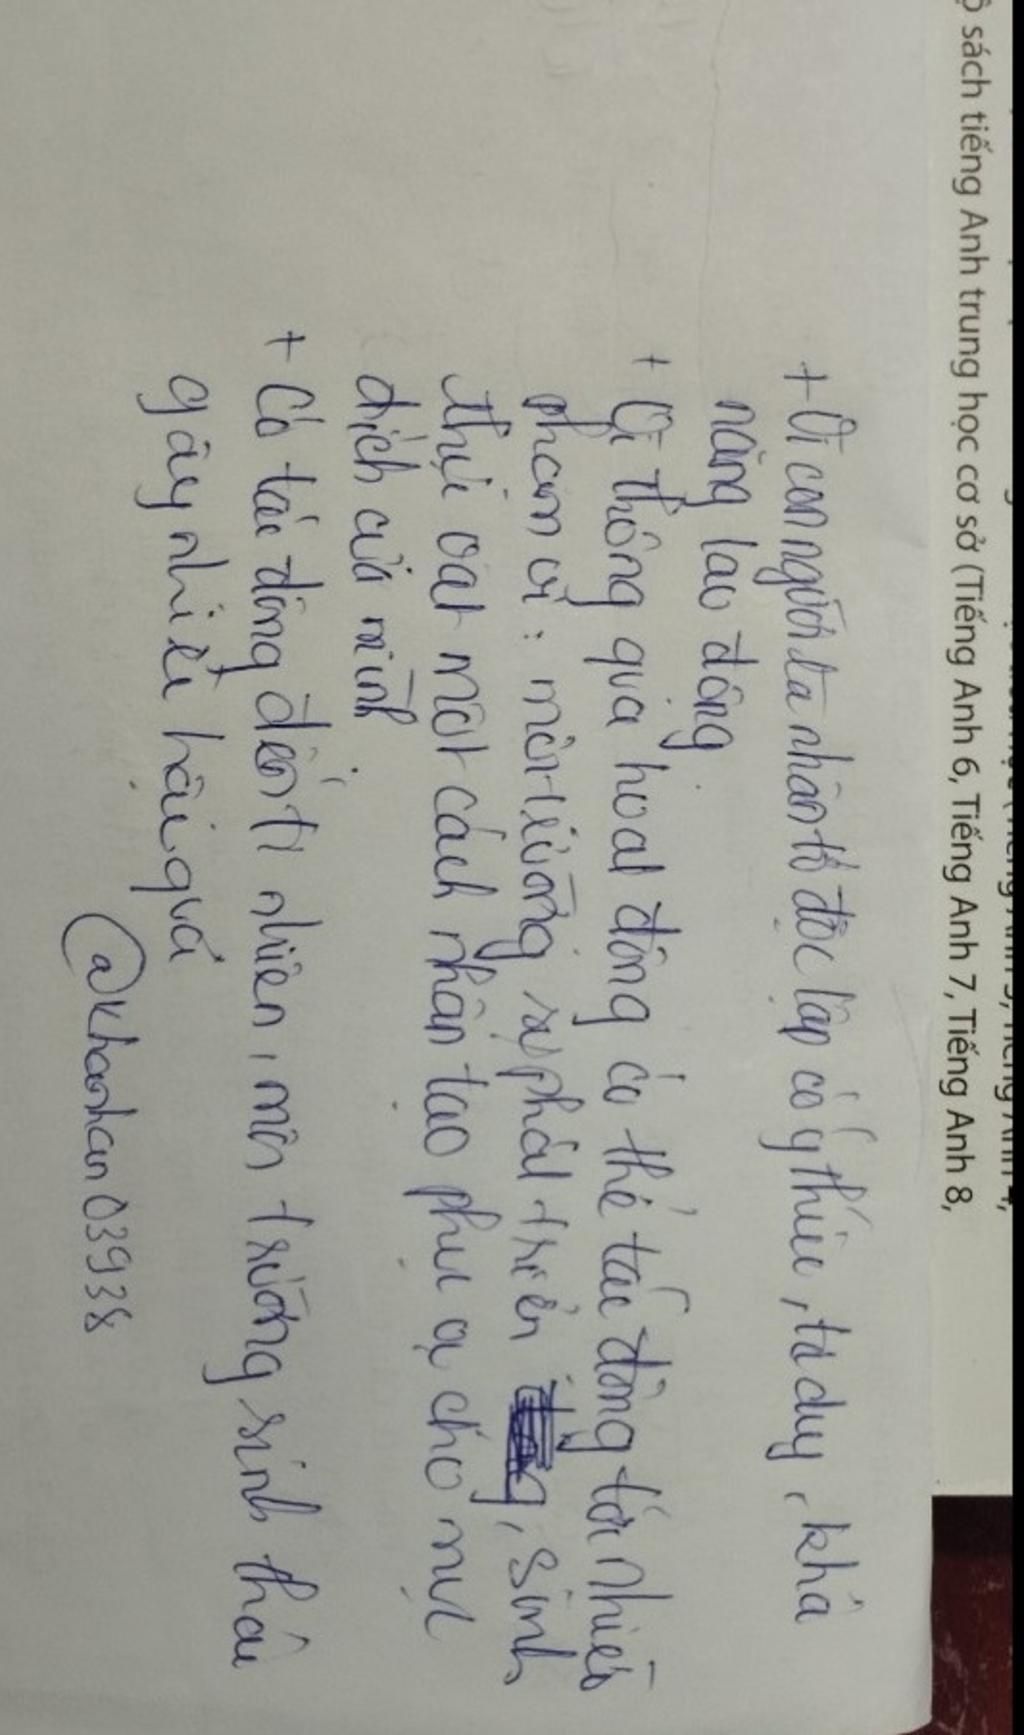 ộ sách tiếng Anh trung học cơ sở (Tiếng Anh 6, Tiếng Anh 7, Tiếng Anh 8,
+ Vì con người là nhân tố độc lập có ý thức, tư duy, khả
năng lao động
+ Vì thông qua hoạt động có thể tác động tới nhiều
phạm vi: môi trường sự phát triển, sinh
thực vật một cách nhân tạo phục vụ cho mục
đích của mình
+ Có tác động đến tự nhiên, môi trường sinh thái
gây nhiều hậu quả
@khanhan03938